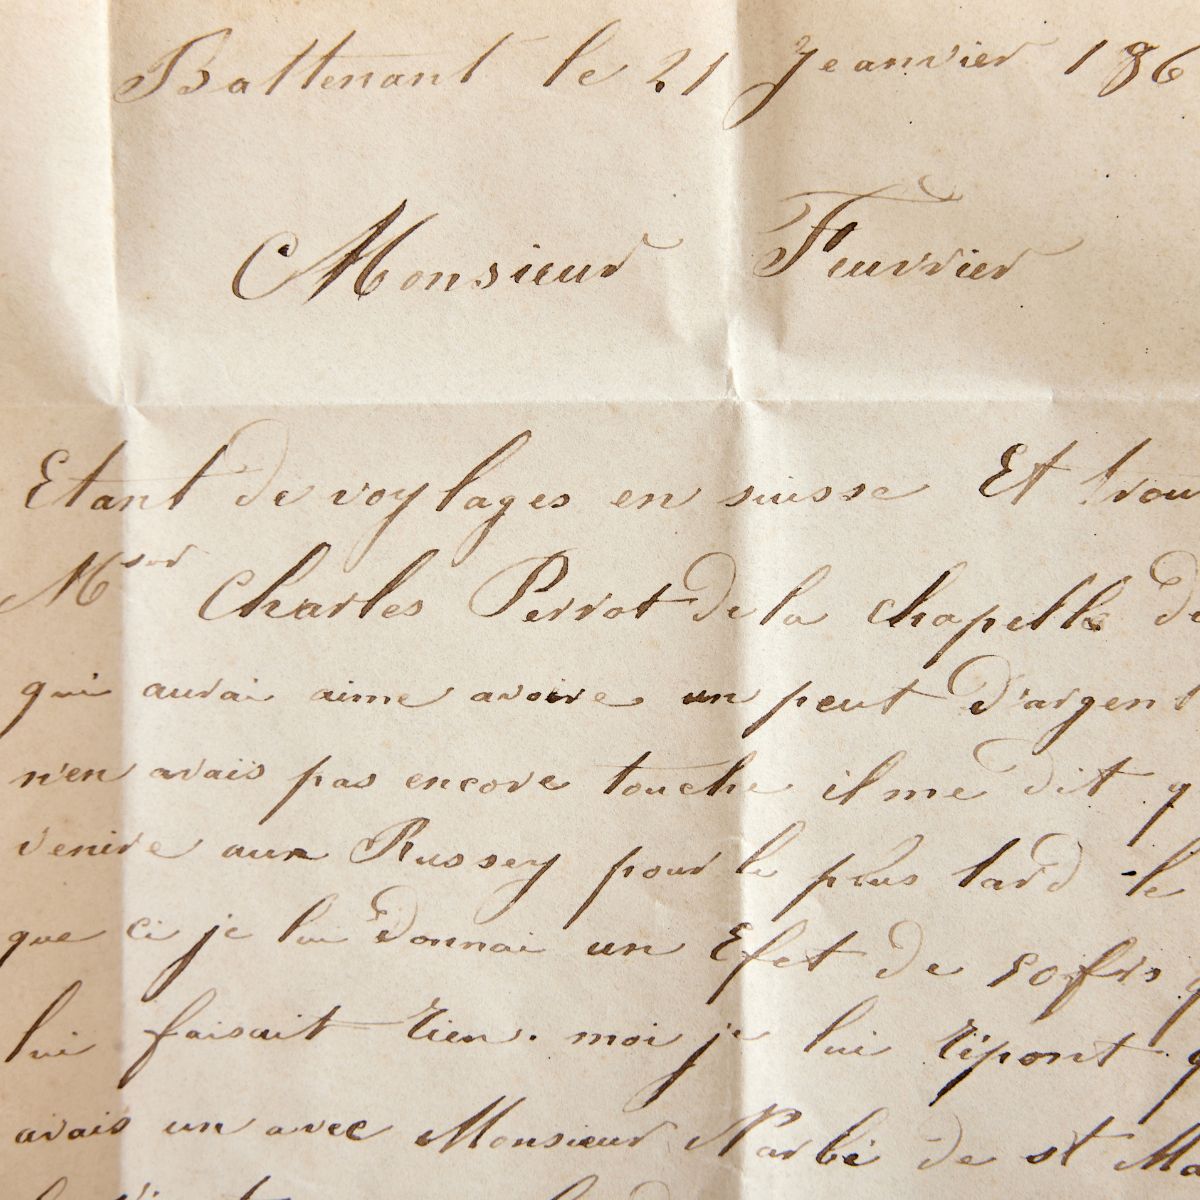 Battenant le 21 Jeanvier 186
Monsieur Feuvrier
Etant de voylages en suisse Et trou
Msur Charles Perrot de la chapelle de
qui aurai aime avoire un peut d'argent
n'en avais pas encore touche il me dit q
venire aux Russey pour le plus tard le
que ci je lui donnai un Efet de 50 frs q
lui faisait rien. moi je lui répont q
avais un avec Monsieur Narbé de st Ma